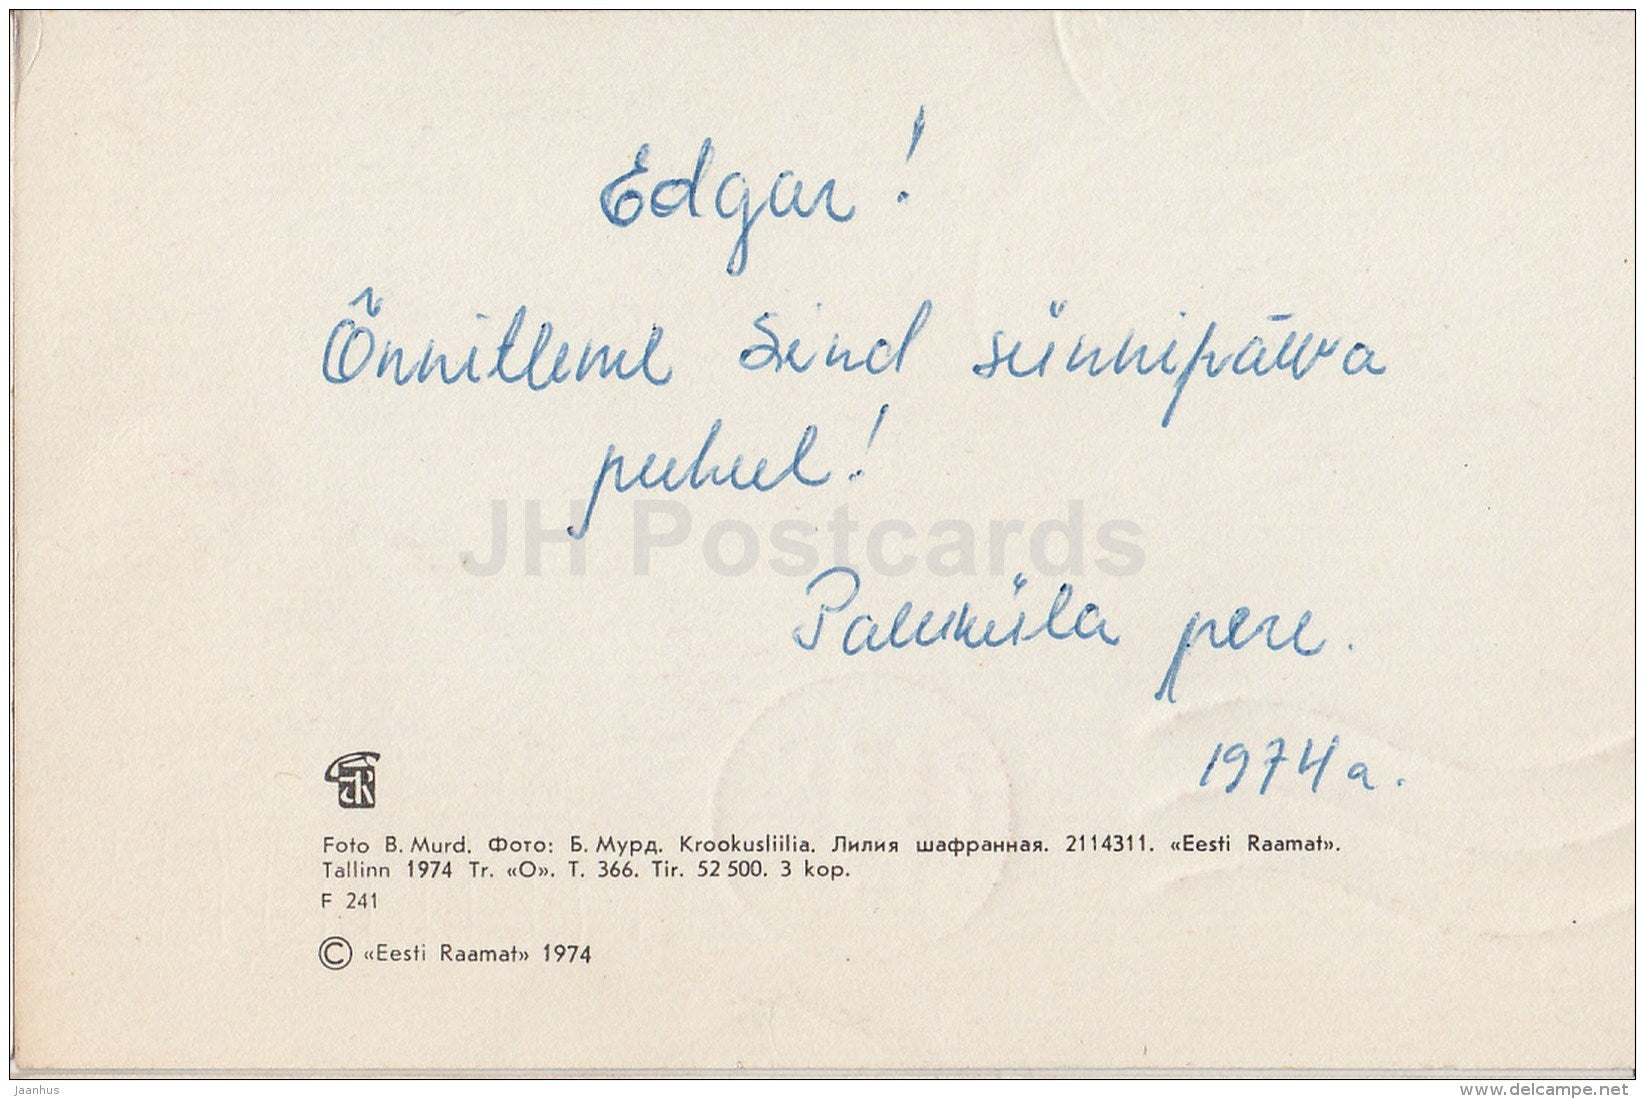 Edgar!
Õnnitleme Sind sünnipäeva
puhul!
JH Postcards
Paluküla pere.
1974 a.
Foto B. Murd. Фото: Б. Мурд. Krookusliilia. Лилия шафранная. 2114311. «Eesti Raamat».
Tallinn 1974 Tr. «O». T. 366. Tir. 52 500. 3 kop.
F 241
© «Eesti Raamat» 1974
jaanhus
www.delcampe.net